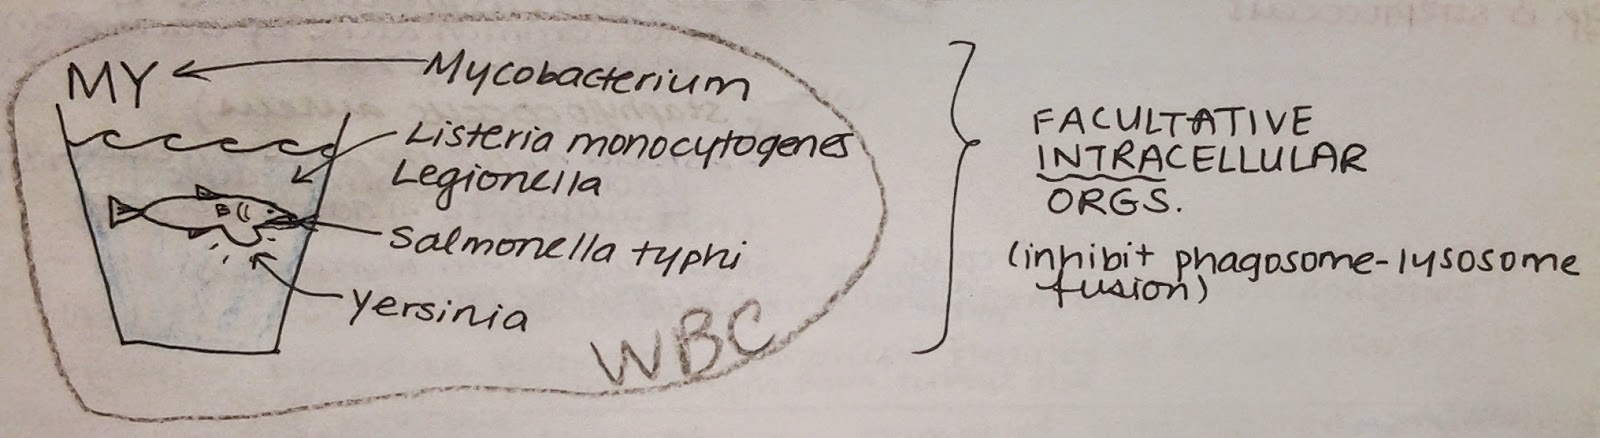 MY
Mycobacterium
Listeria monocytogenes
Legionella
Salmonella typhi
Yersinia
WBC
FACULTATIVE
INTRACELLULAR
ORGS.
(inhibit phagosome-lysosome
fusion)